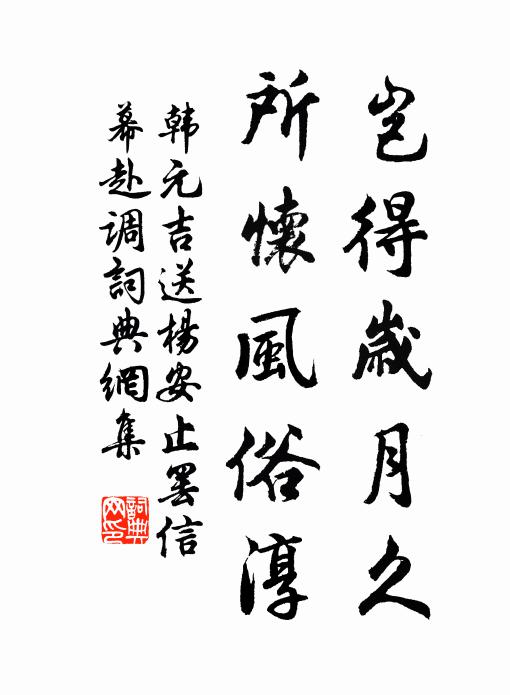 岂得歲月久
所懷風俗淳
韩元吉送楊安止罢信
幕赴调詞典網集
詞典
网印